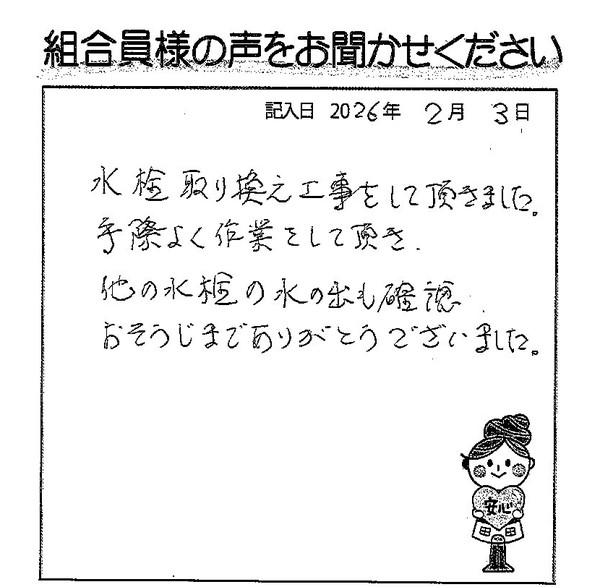 組合員様の声をお聞かせください
記入日 2026年 2月 3日
水栓取り換え工事をして頂きました。
手際よく作業をして頂き.
他の水栓の水の出も確認.
おそうじまでありがとうございました。
安心